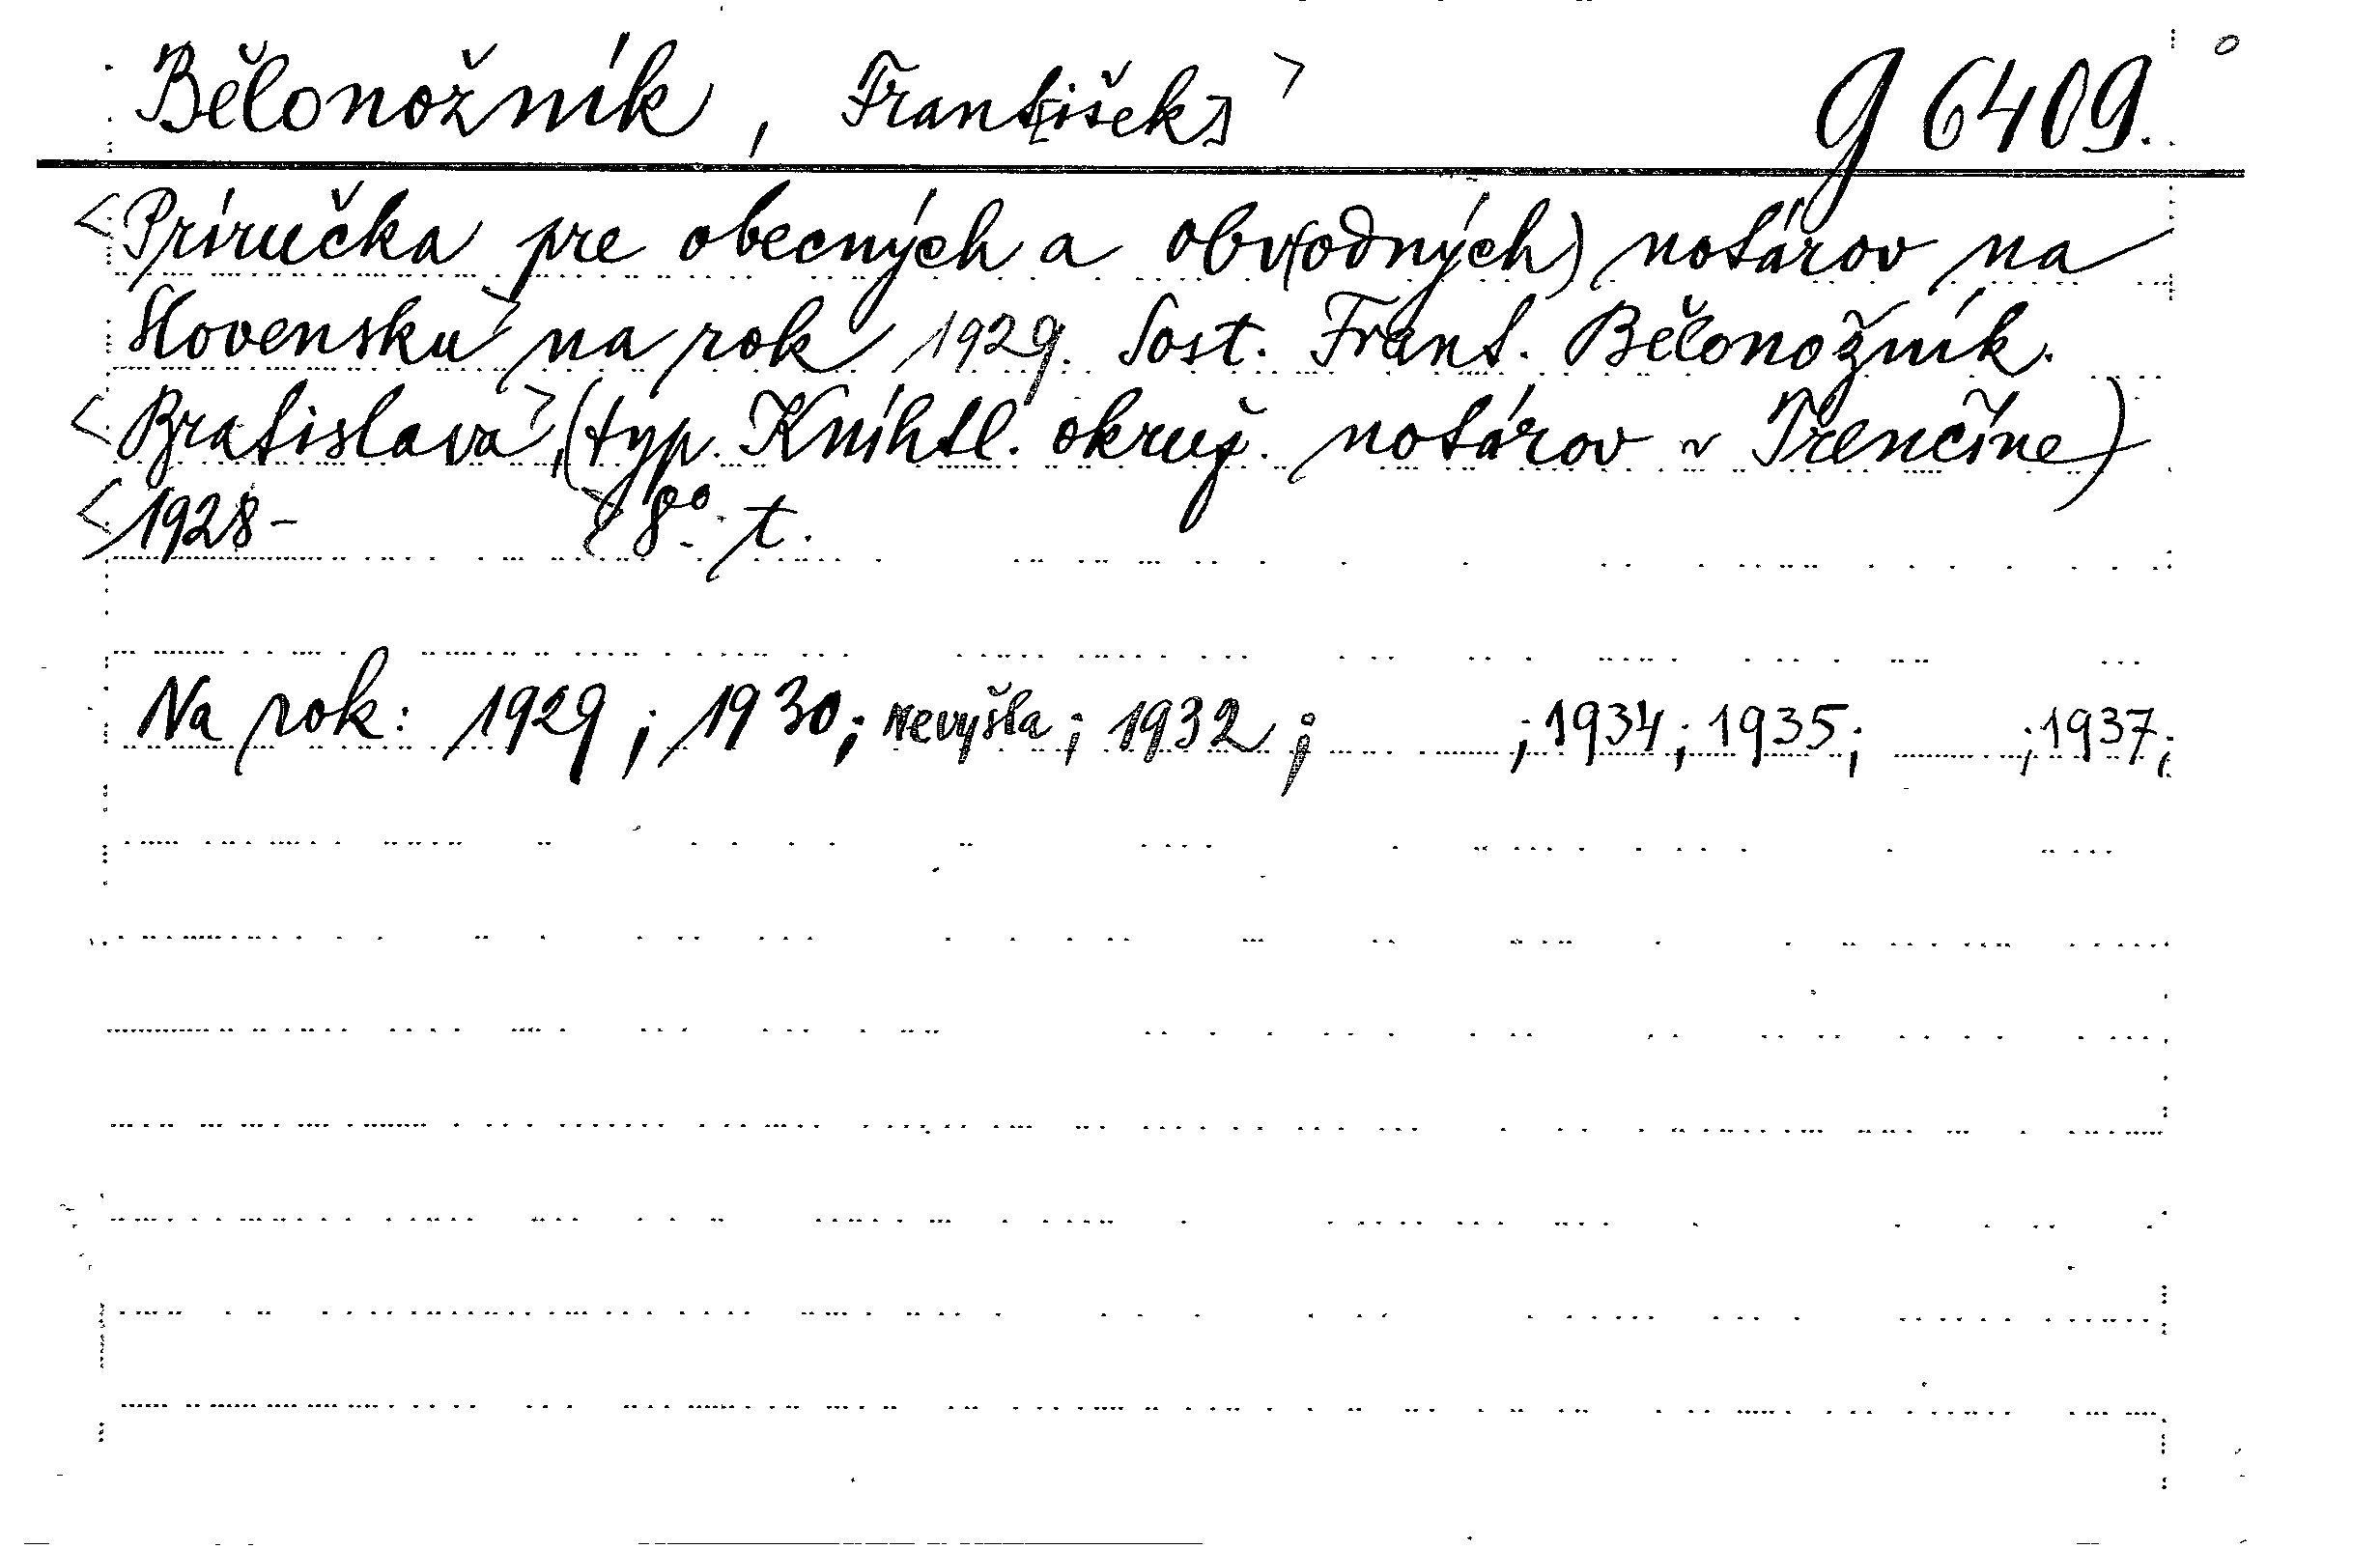 Bělonožník, Frant[išek] G 6409.
Príručka pre obecných a obv(odných) notárov na
Slovensku na rok 1929. Sost. Frant. Bělonožník.
Bratislava, (typ. Kníhtl. okruž. notárov v Trenčíne)
1928- 8° t.
Na rok: 1929; 1930; nevyšla; 1932; ; 1934; 1935; ; 1937;